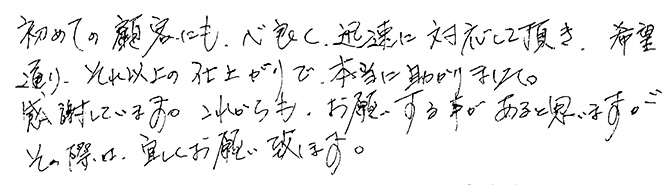 初めての顧客にも、心良く、迅速に対応して頂き、希望
通り、それ以上の仕上がりで、本当に助かりました。
感謝しています。これからも、お願いする事があると思いますが
その際は、宜しくお願い致します。